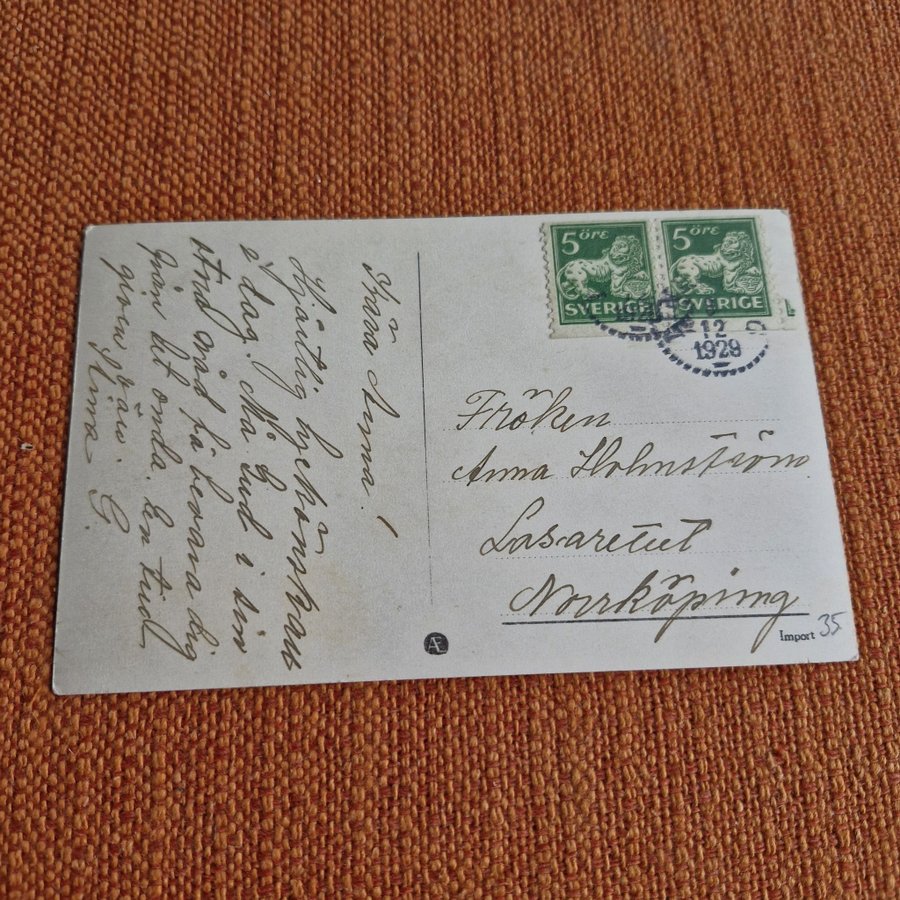 Kära Anna!
Hjärtlig lyckönskan
i dag. Må Gud i sin
stora nåd få bevara dig
från det onda. En trud
gren
Anna G.
5 öre
SVERIGE
5 öre
SVERIGE
12
1929
Fröken
Anna Holmström
Lasaretut
Norrköping
Import 35
Æ